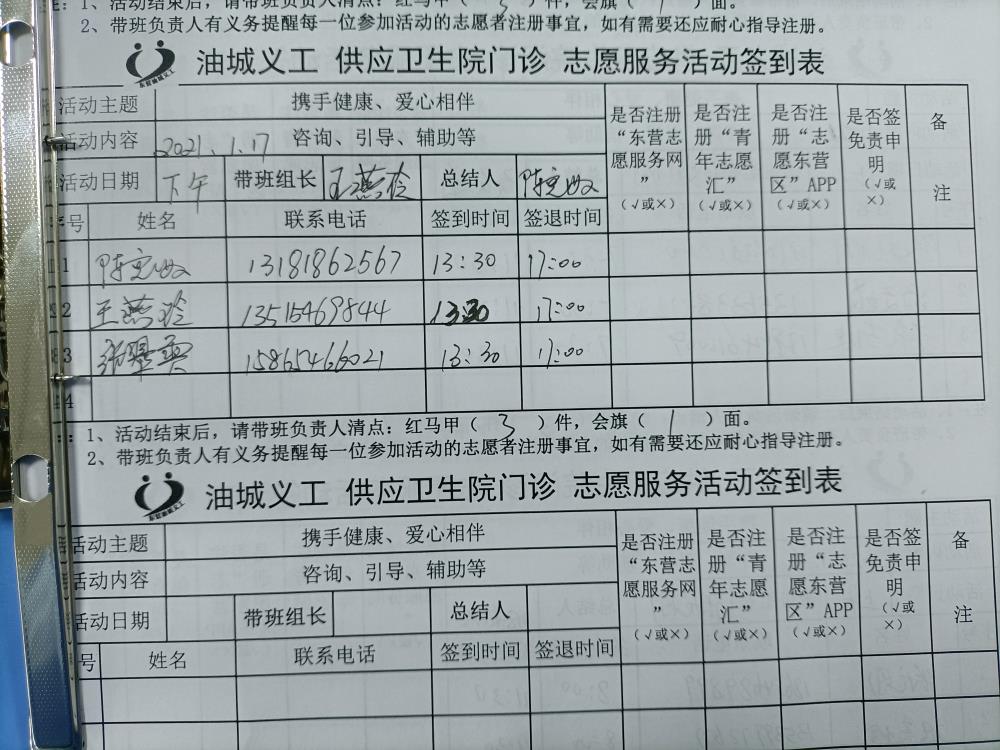 1、活动结束后，请带班负责人清点：红马甲（ 3 ）件，会旗（ 1 ）面。
2、带班负责人有义务提醒每一位参加活动的志愿者注册事宜，如有需要还应耐心指导注册。
油城义工 供应卫生院门诊 志愿服务活动签到表
活动主题 携手健康、爱心相伴 是否注册“东营志愿服务网”（√或×） 是否注册“青年志愿汇”（√或×） 是否注册“志愿东营区”APP（√或×） 是否签免责申明（√或×） 备注
活动内容 咨询、引导、辅助等
活动日期 2021.1.17 下午 带班组长 王燕玲 总结人
序号 姓名 联系电话 签到时间 签退时间
1 13181862567 13:30 17:00
2 王燕玲 13515469844 13:30 17:00
3 15865466021 13:30 17:00
4
1、活动结束后，请带班负责人清点：红马甲（ 3 ）件，会旗（ 1 ）面。
2、带班负责人有义务提醒每一位参加活动的志愿者注册事宜，如有需要还应耐心指导注册。
油城义工 供应卫生院门诊 志愿服务活动签到表
活动主题 携手健康、爱心相伴 是否注册“东营志愿服务网”（√或×） 是否注册“青年志愿汇”（√或×） 是否注册“志愿东营区”APP（√或×） 是否签免责申明（√或×） 备注
活动内容 咨询、引导、辅助等
活动日期 带班组长 总结人
号 姓名 联系电话 签到时间 签退时间